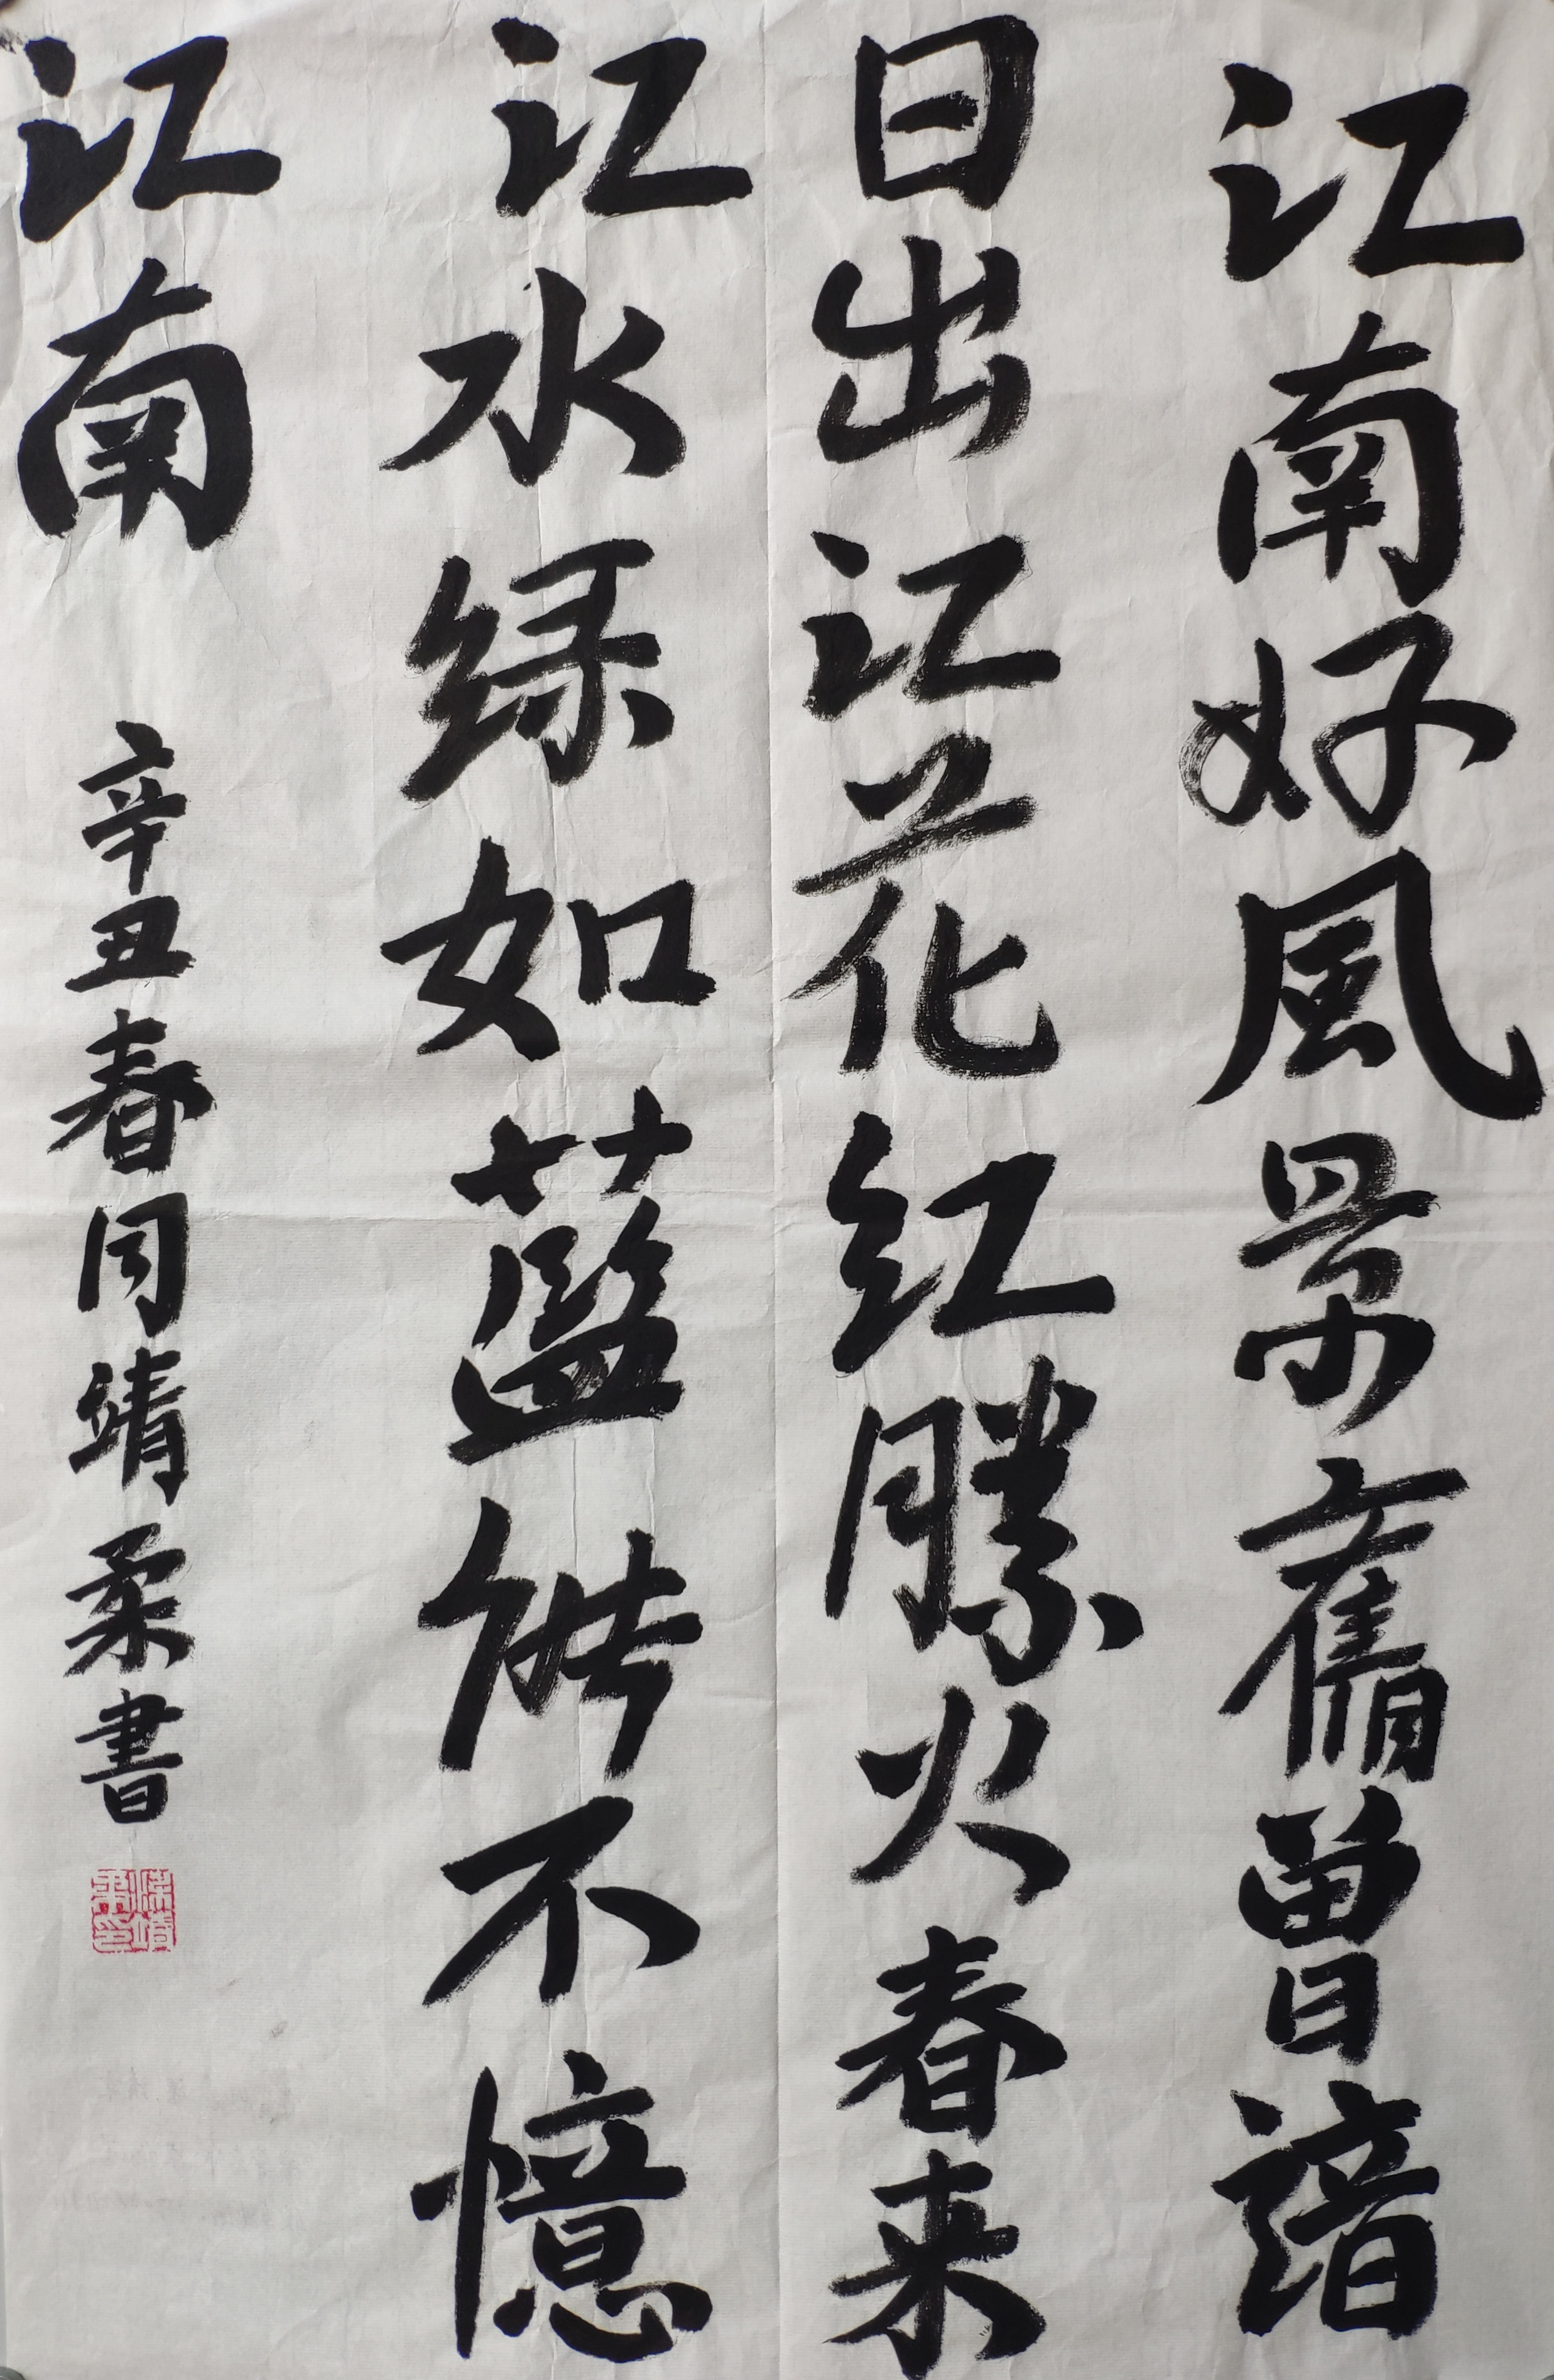 江南好風景舊曾諳
日出江花红勝火春来
江水绿如藍能不憶
江南
辛丑春靖柔書